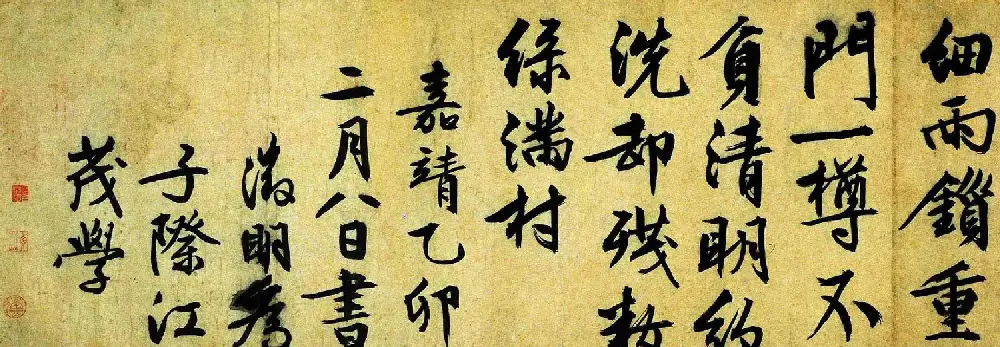 細雨鎖重
門一樽不
負清明約
洗却殘妝
綠滿村
嘉靖乙卯
二月八日書
徵明爲
子際江
茂學